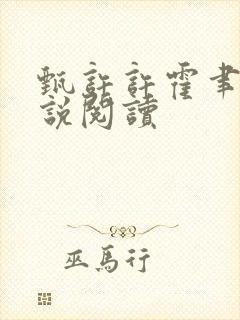 甄許許霍聿
說閱讀
巫馬行